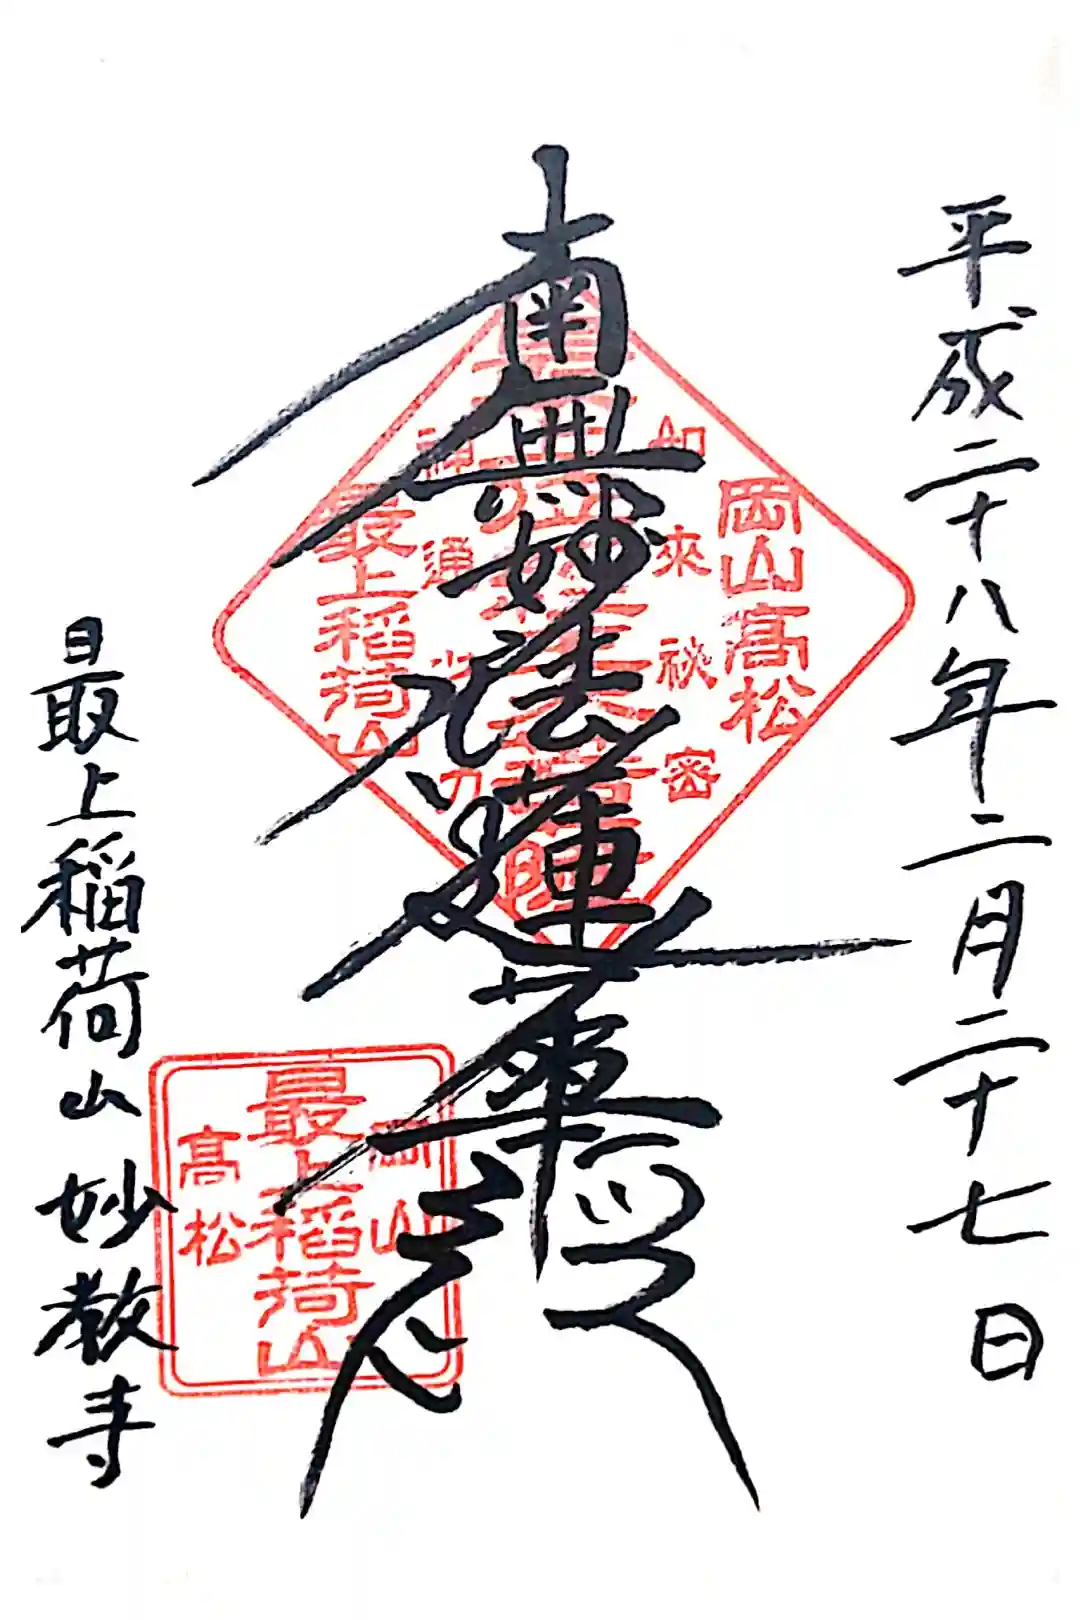 平成二十八年二月二十七日
岡山高松
如来秘密
南無妙法蓮華経
神通之力
最上稲荷山
岡山
最上稲荷山
高松
最上稲荷山妙教寺